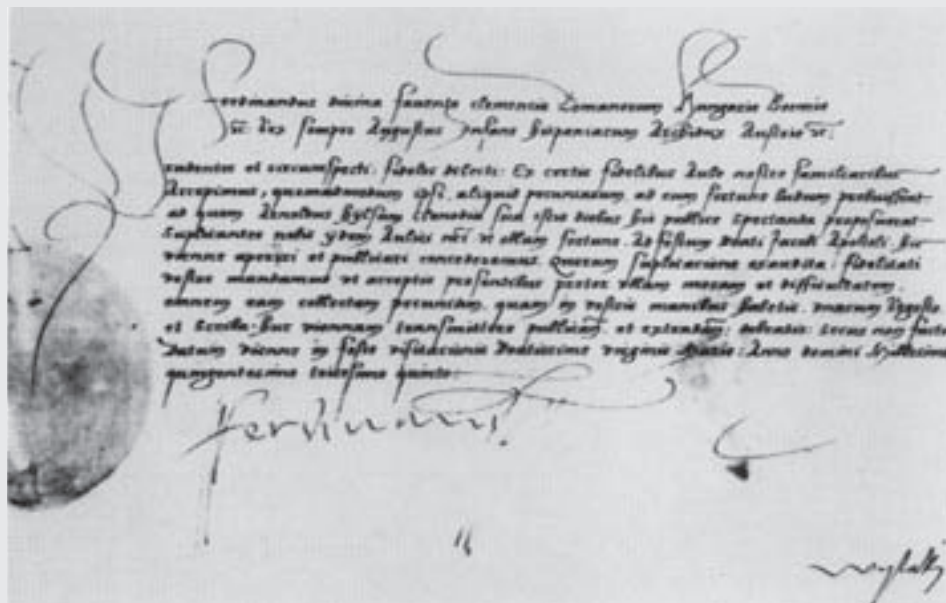 Ferdinandus divina favente clementia Romanorum Hungarie Boemie
Rex semper Augustus Infans hispaniarum Archidux Austrie
prudentes et circumspecti: fideles dilecti: Ex certis fidelibus Aule nostre familiaribus
Accepimus, quemadmodum ipsi aliquid pecuniarum ad eum fortune ludum
ad quem Arnoldus clenodia sua istis diebus hic publice spectanda
Suplicantes nobis ydem Aulici ut ollam fortune Ad festum Jacobi Apostoli
vienne aperiri et concederemus Quorum suplicatione exaudita: fidelitati
vestre mandamus ut acceptis presentibus preter ullam moram et difficultatem
omnem eam collectam pecuniam, quam in vestris manibus habetis
et huc viennam transmittere et secus non
Datum vienne in festo visitationis beatissime virginis Marie: Anno domini Millesimo
quingentesimo tricesimo quinto
Ferdinandus
16